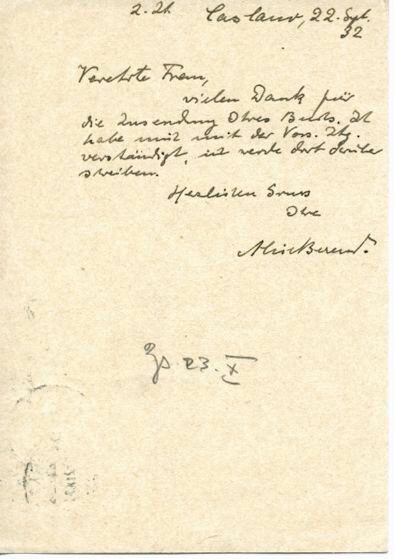 z. Zt. Caslano, 22. Sept.
32
Verehrte Frau,
vielen Dank für
die Zusendung Ihres Buchs. Ich
habe mich mit der Voss. Ztg.
verständigt, ich werde dort darüber
schreiben.
Herzlichen Gruss
Ihre
Alice Berend.
23. X